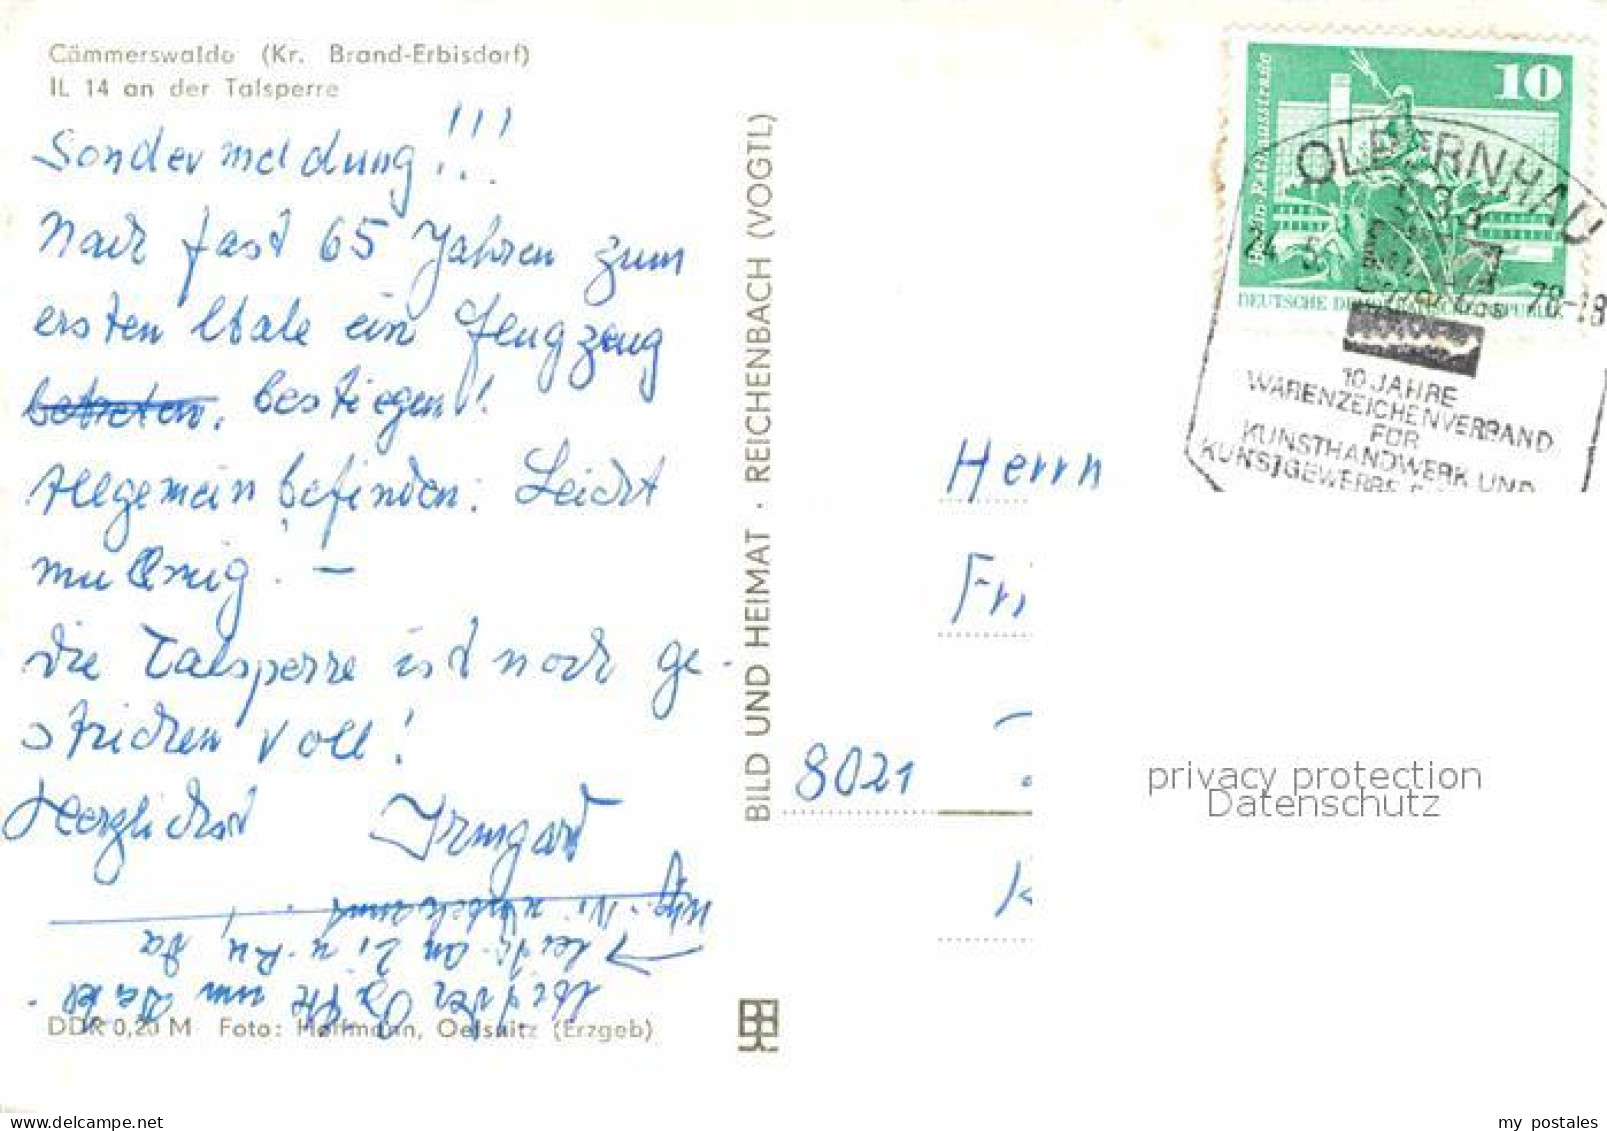 Cämmerswalde (Kr. Brand-Erbisdorf)
IL 14 an der Talsperre
Sondermeldung!!!
Nach fast 65 Jahren zum
ersten Male ein Flugzeug
betreten. bestiegen!
Allgemeinbefinden: Leicht
mulmig. –
Die Talsperre ist noch ge-
strichen voll!
Herzlichst Irmgard
DDR 0,20 M Foto: Hoffmann, Oelsnitz (Erzgeb)
BILD UND HEIMAT · REICHENBACH (VOGTL)
10
Berlin-Rathausstraße
DEUTSCHE DEMOKRATISCHE REPUBLIK
OLBERNHAU
933
24. 5. 78-18
10 JAHRE
WARENZEICHENVERBAND
FÜR
KUNSTHANDWERK UND
KUNSTGEWERBE
Herrn
Fri
8021
privacy protection
Datenschutz
my postales